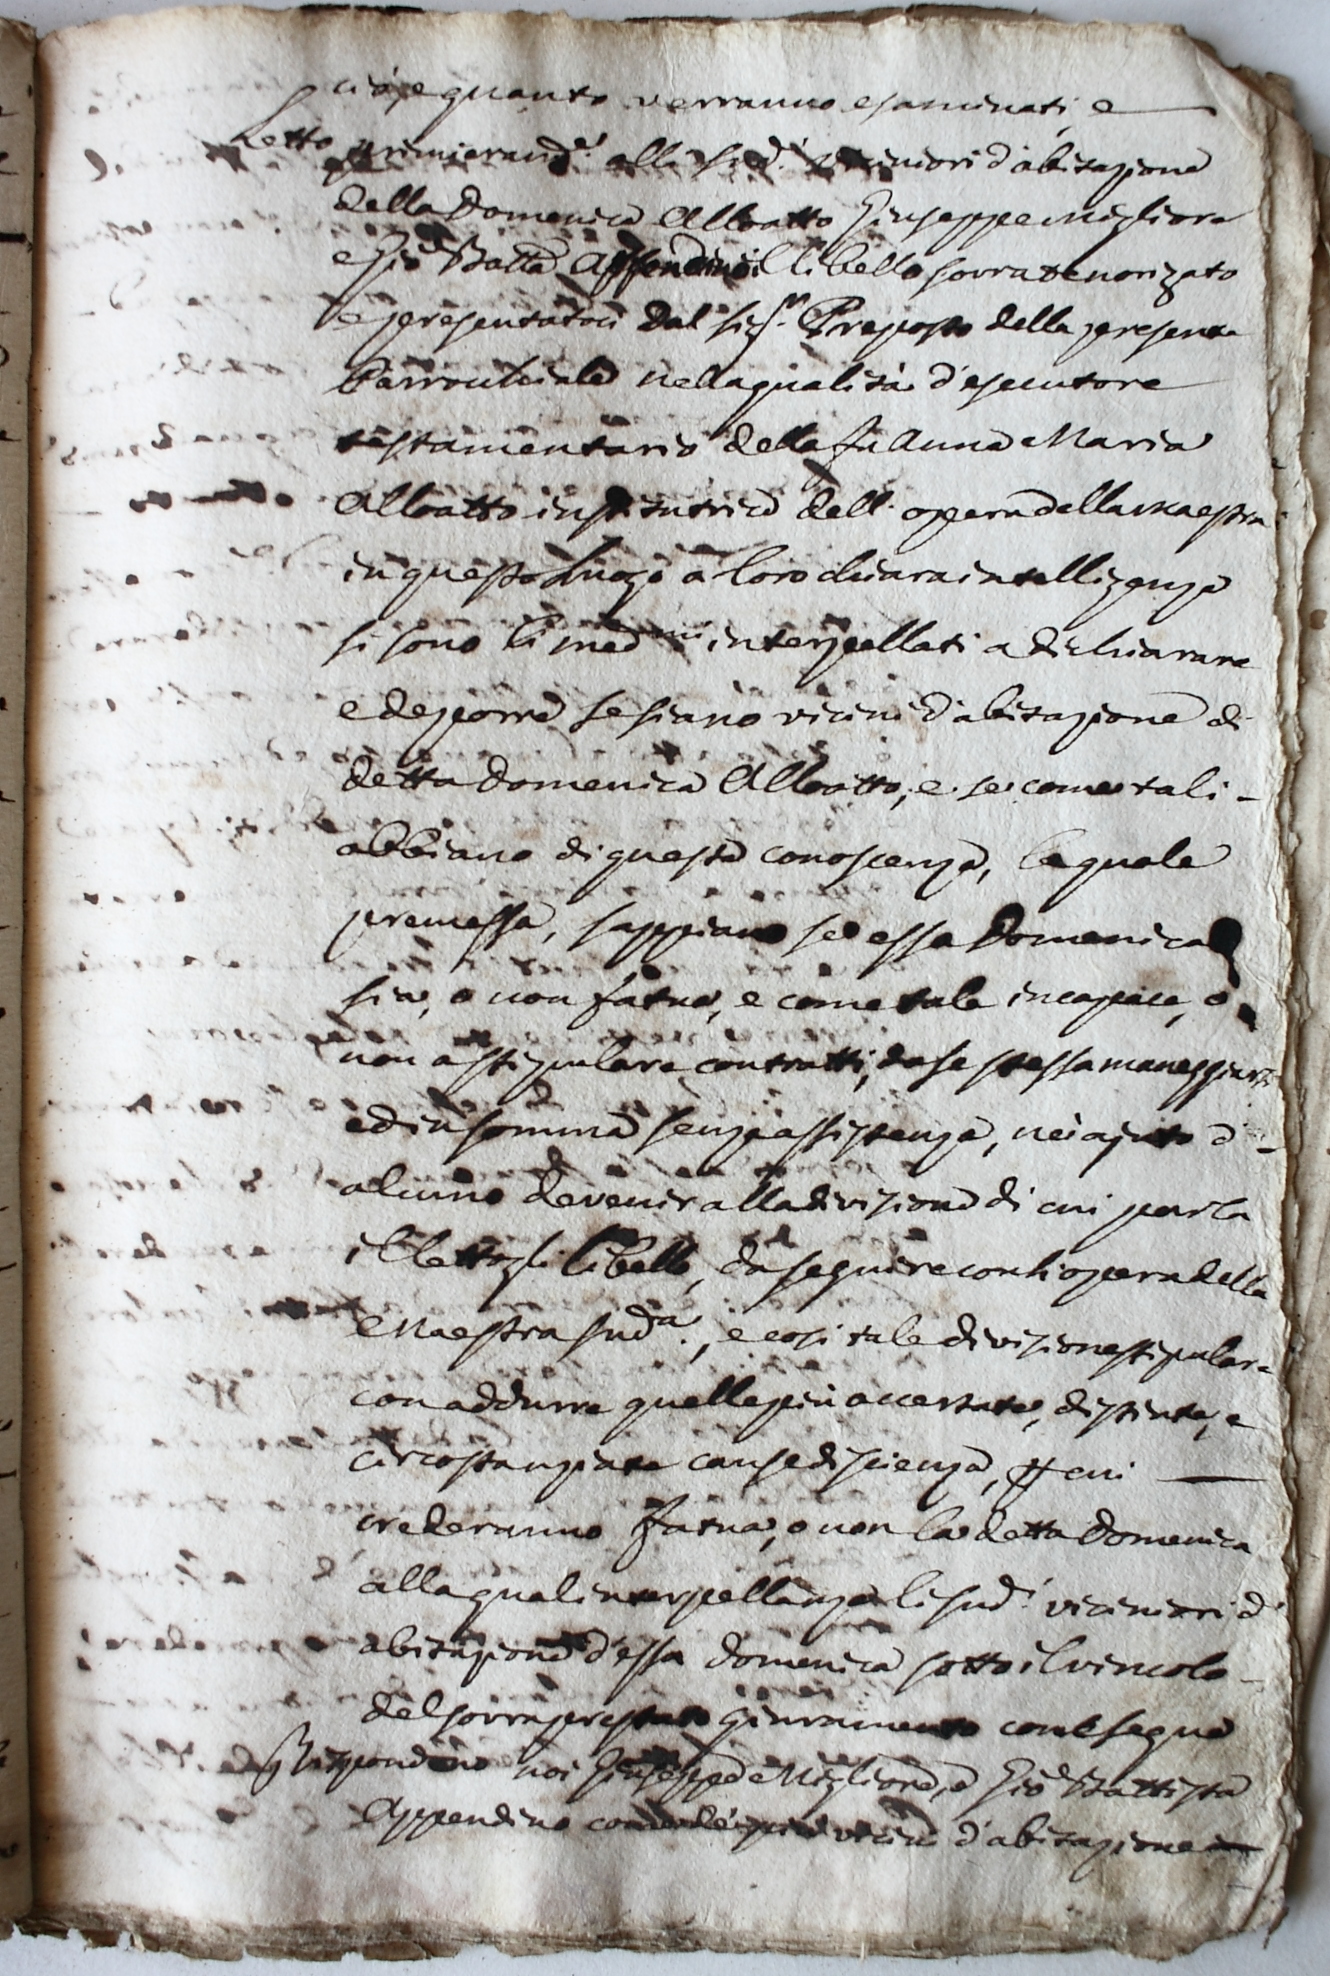 ciò, e quanto verranno esaminati, e
Letto primieram.te alli sud.i viciniori d'abitazione
della Domenica Alloatto Giuseppe Migliore
e Gio Batta Appendino il libello sovra tenorizato
e presentatoci dal sig.r Preposto della presente
Parrochiale nella qualità d'esecutore
testamentario della fu Anna Maria
Alloatto institutrice dell'opera della maestra
in questo luogo a loro chiara intelligenza
si sono li med.mi interpellati a dichiarare
e deporre se siano vicini d'abitazione di
detta Domenica Alloatto, e se come tali
abbiano di questa conoscenza, la quale
premessa, sappiano se essa Domenica
sia, o non fatua, e come tale incapace, o
non a stipulare contratti, da se stessa maneggiarsi
ed in somma senza assistenza, nè ajuto d'
alcuno devenir alla divisione di cui parla
il lettogli libello, da seguire con l'opera della
Maestra sud.a, e così tale divisione stipulare
con addurre quelle più accertate, distinte, e
circostanziate cause di scienza, per cui
crederanno fatua, o non la detta Domenica
alla qual interpellanza li sud.i viciniori d'
abitazione d'essa Domenica sotto il vincolo
del sovra prestato giuramento come segue
Rispondono noi Giuseppe Migliore, e Gio Battista
Appendino vicini d'abitazione